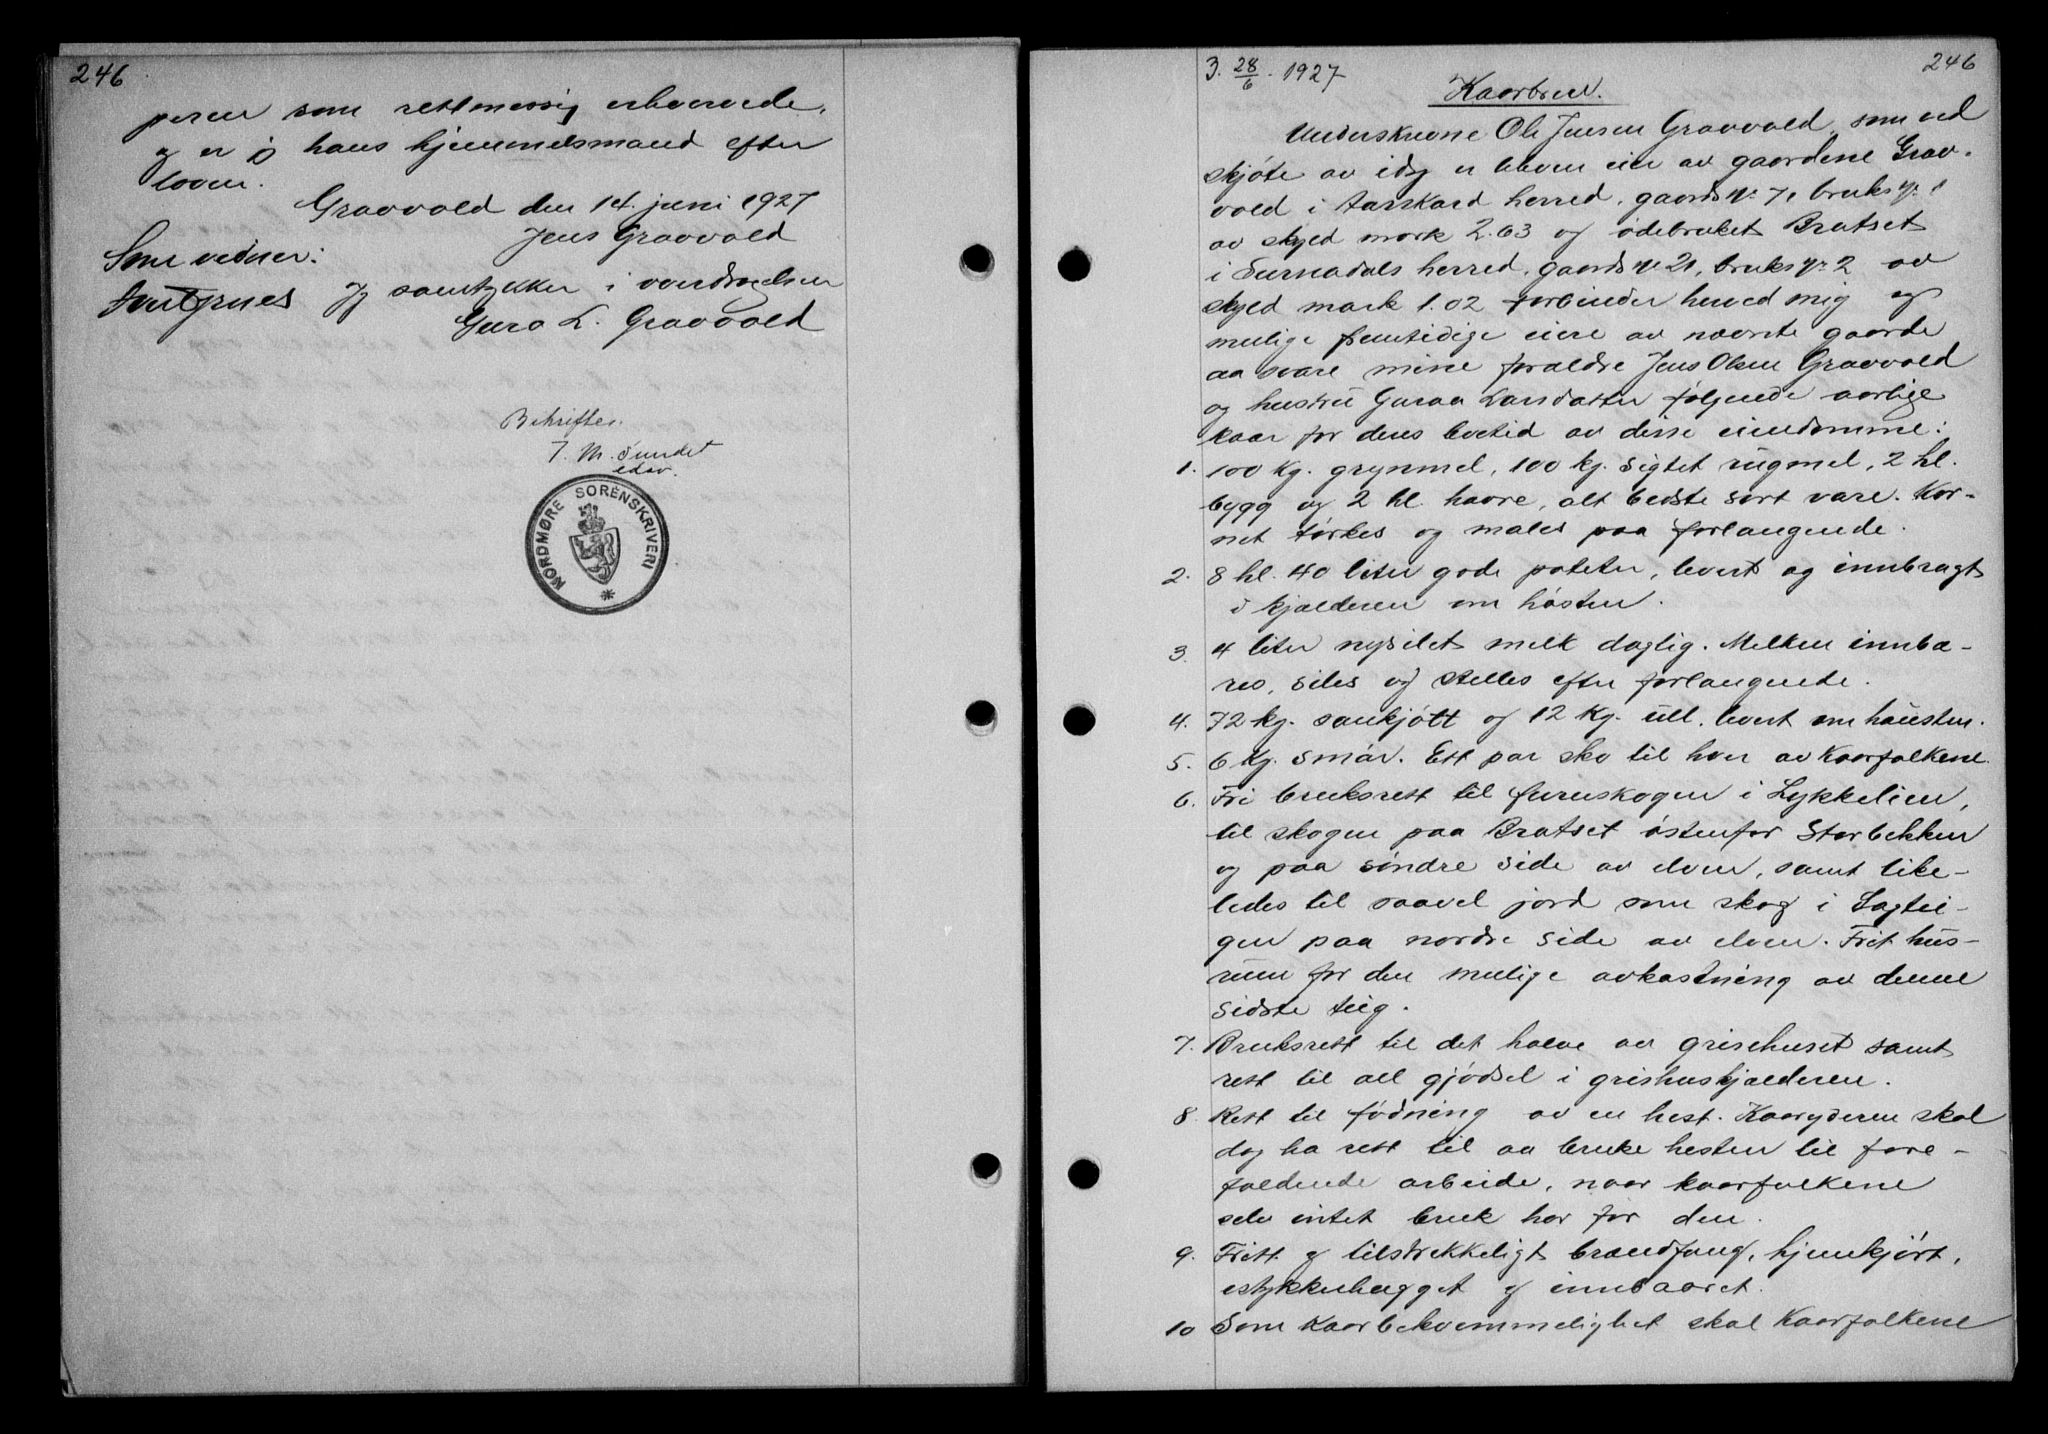 246
peren som rettmessig erhververde,
og er j hans hjemmelsmand efter
loven.
Gravvold den 14. juni 1927
Jens Gravvold
Som vidner:
Jeg samtykker i overdragelsen
Guro L. Gravvold
Bekriftes.
T. M. Sundet
edsv.
NORDMØRE SORENSKRIVERI
3. 28/6 1927
246
Kaarbrev.
Underskrevne Ole Jensen Gravvold, som ved
skjøte av idag er bleven eier av gaardene Grav-
vold i Aasskard herred, gaards № 7, bruks № 1
av skyld mark 2.63 og ødebruket Bratset
i Surnadals herred, gaards № 21, bruks № 2 av
skyld mark 1.02 forbinder herved mig og
mulige fremtidige eiere av nævnte gaarde
aa svare mine foraldre Jens Olsen Gravvold
og hustru Guraa Larsdatter følgende aarlige
kaar for deres levetid av disse eiendomme:
1. 100 kg. grynmel, 100 kg. sigtet rugmel, 2 hl.
bygg og 2 hl. havre, alt bedste sort vare. Kor-
net tørkes og males paa forlangende.
2. 8 hl. 40 liter gode poteter, levert og innbragt
i kjælderen om høsten.
3. 4 liter nysilet melk daglig. Melken innbæ-
res, siles og stelles efter forlangende.
4. 72 kg. saukjøtt og 12 kg. ull, levert om hausten.
5. 6 kg. smør. Ett par sko til hver av kaarfolkene.
6. Fri bruksrett til furuskogen i Lykkelien,
til skogen paa Bratset østenfor Storbekken
og paa søndre side av elven, samt like-
ledes til saavel jord som skog i Sagtei-
gen paa nordre side av elven. Frit hus-
rum for den mulige avkastning av denne
sidste teig.
7. Bruksrett til det halve av grisehuset samt
rett til all gjødsel i grishuskjælderen.
8. Rett til fødning av en hest. Kaaryderen skal
dog ha rett til aa bruke hesten til fore-
faldende arbeide, naar kaarfolkene
selv intet bruk har for den.
9. Fritt og tilstrekkeligt brændfang, hjemkjørt,
istykkehugget og innbaaret.
10 Som kaarbekvemmelighet skal kaarfolkene